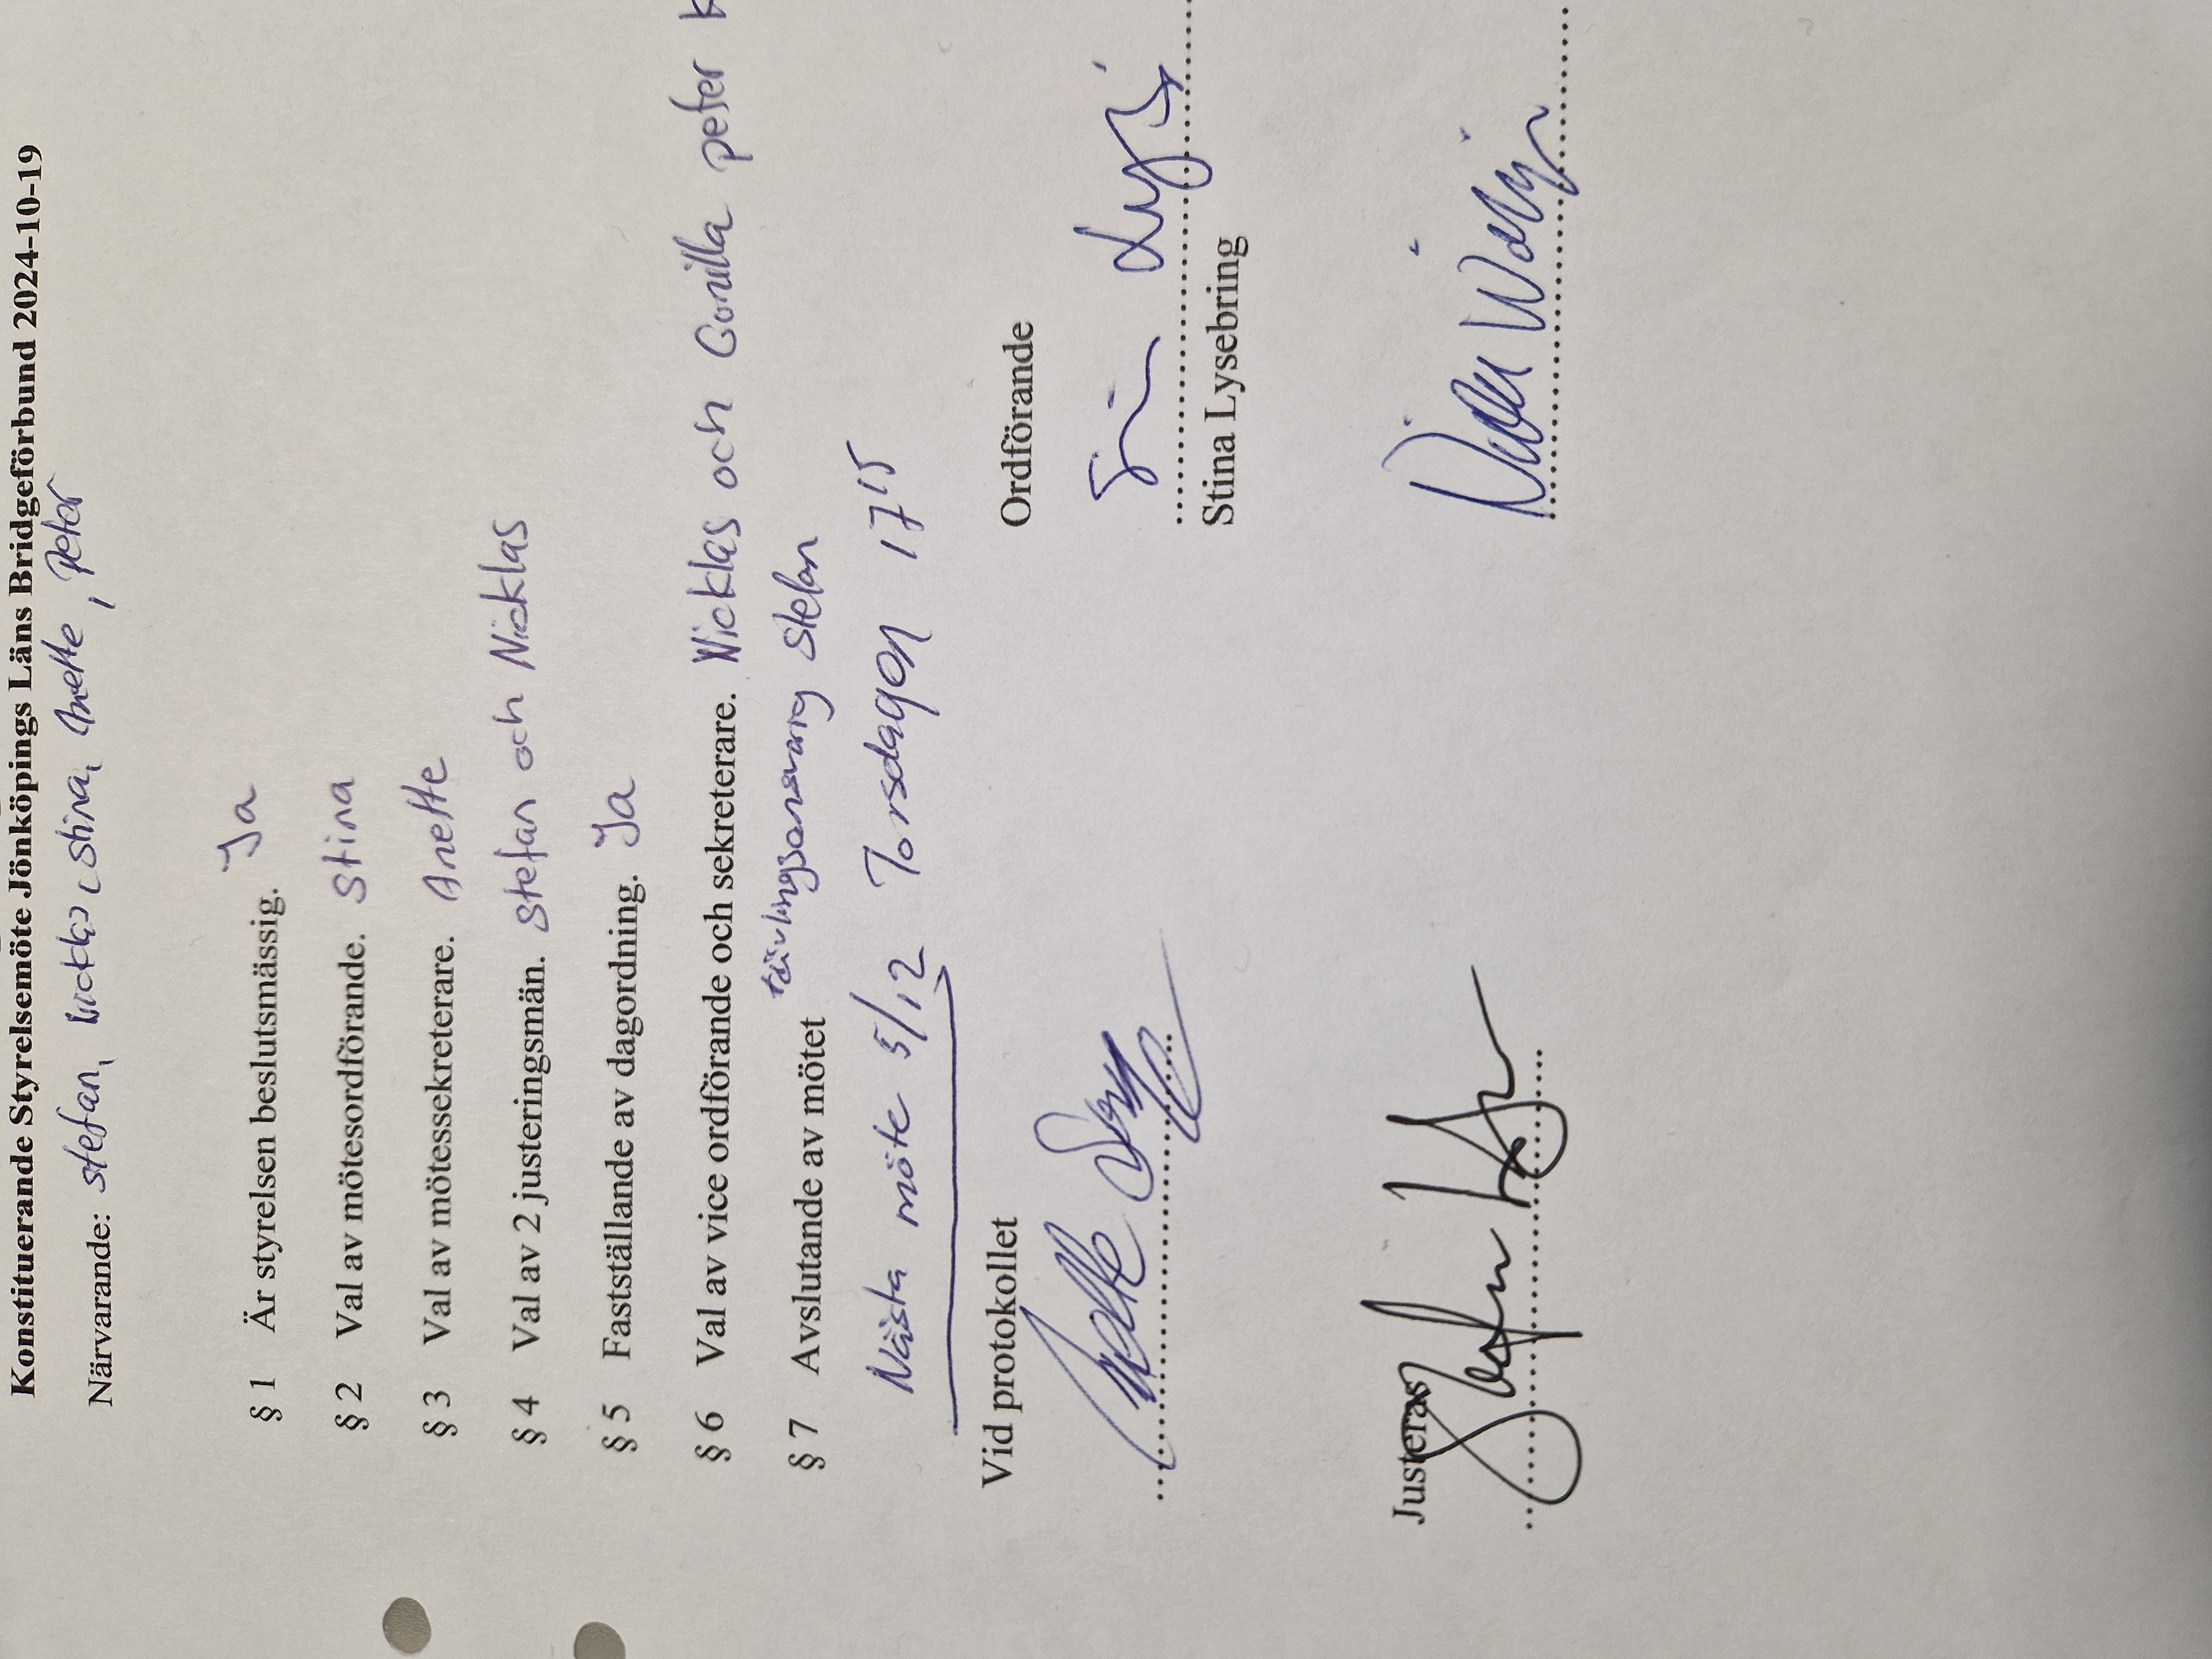 Konstituerande Styrelsemöte Jönköpings Läns Bridgeförbund 2024-10-19
Närvarande: stefan, Stina, Anette, Peter
§ 1 Är styrelsen beslutsmässig. Ja
§ 2 Val av mötesordförande. Stina
§ 3 Val av mötessekreterare. Anette
§ 4 Val av 2 justeringsmän. Stefan och Nicklas
§ 5 Fastställande av dagordning. Ja
§ 6 Val av vice ordförande och sekreterare. Nicklas och Gunilla peter k
tävlingsansvarig Stefan
§ 7 Avslutande av mötet
Nästa möte 5/12 Torsdagen 17 15
Vid protokollet Ordförande
Stina Lysebring
Justeras